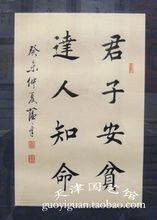 君子安貧
達人知命
癸未仲夏
天津国艺绘
guoyiguan.taobao.com